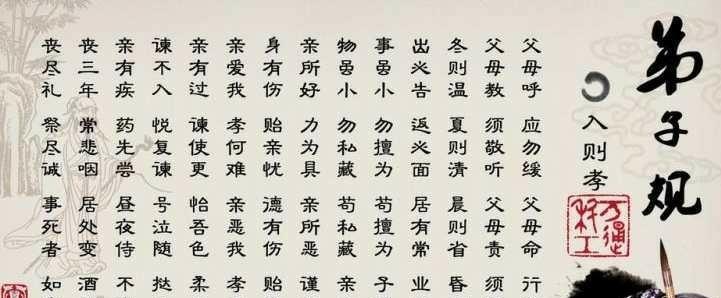 弟子规
入则孝
父母呼 应勿缓 父母命 行
父母教 须敬听 父母责 须
冬则温 夏则清 晨则省 昏
出必告 返必面 居有常 业
事虽小 勿擅为 苟擅为 子
物虽小 勿私藏 苟私藏 亲
亲所好 力为具 亲所恶 谨
身有伤 贻亲忧 德有伤 贻
亲爱我 孝何难 亲恶我 孝
亲有过 谏使更 怡吾色 柔
谏不入 悦复谏 号泣随 挞
亲有疾 药先尝 昼夜侍 不
丧三年 常悲咽 居处变 酒
丧尽礼 祭尽诚 事死者 如